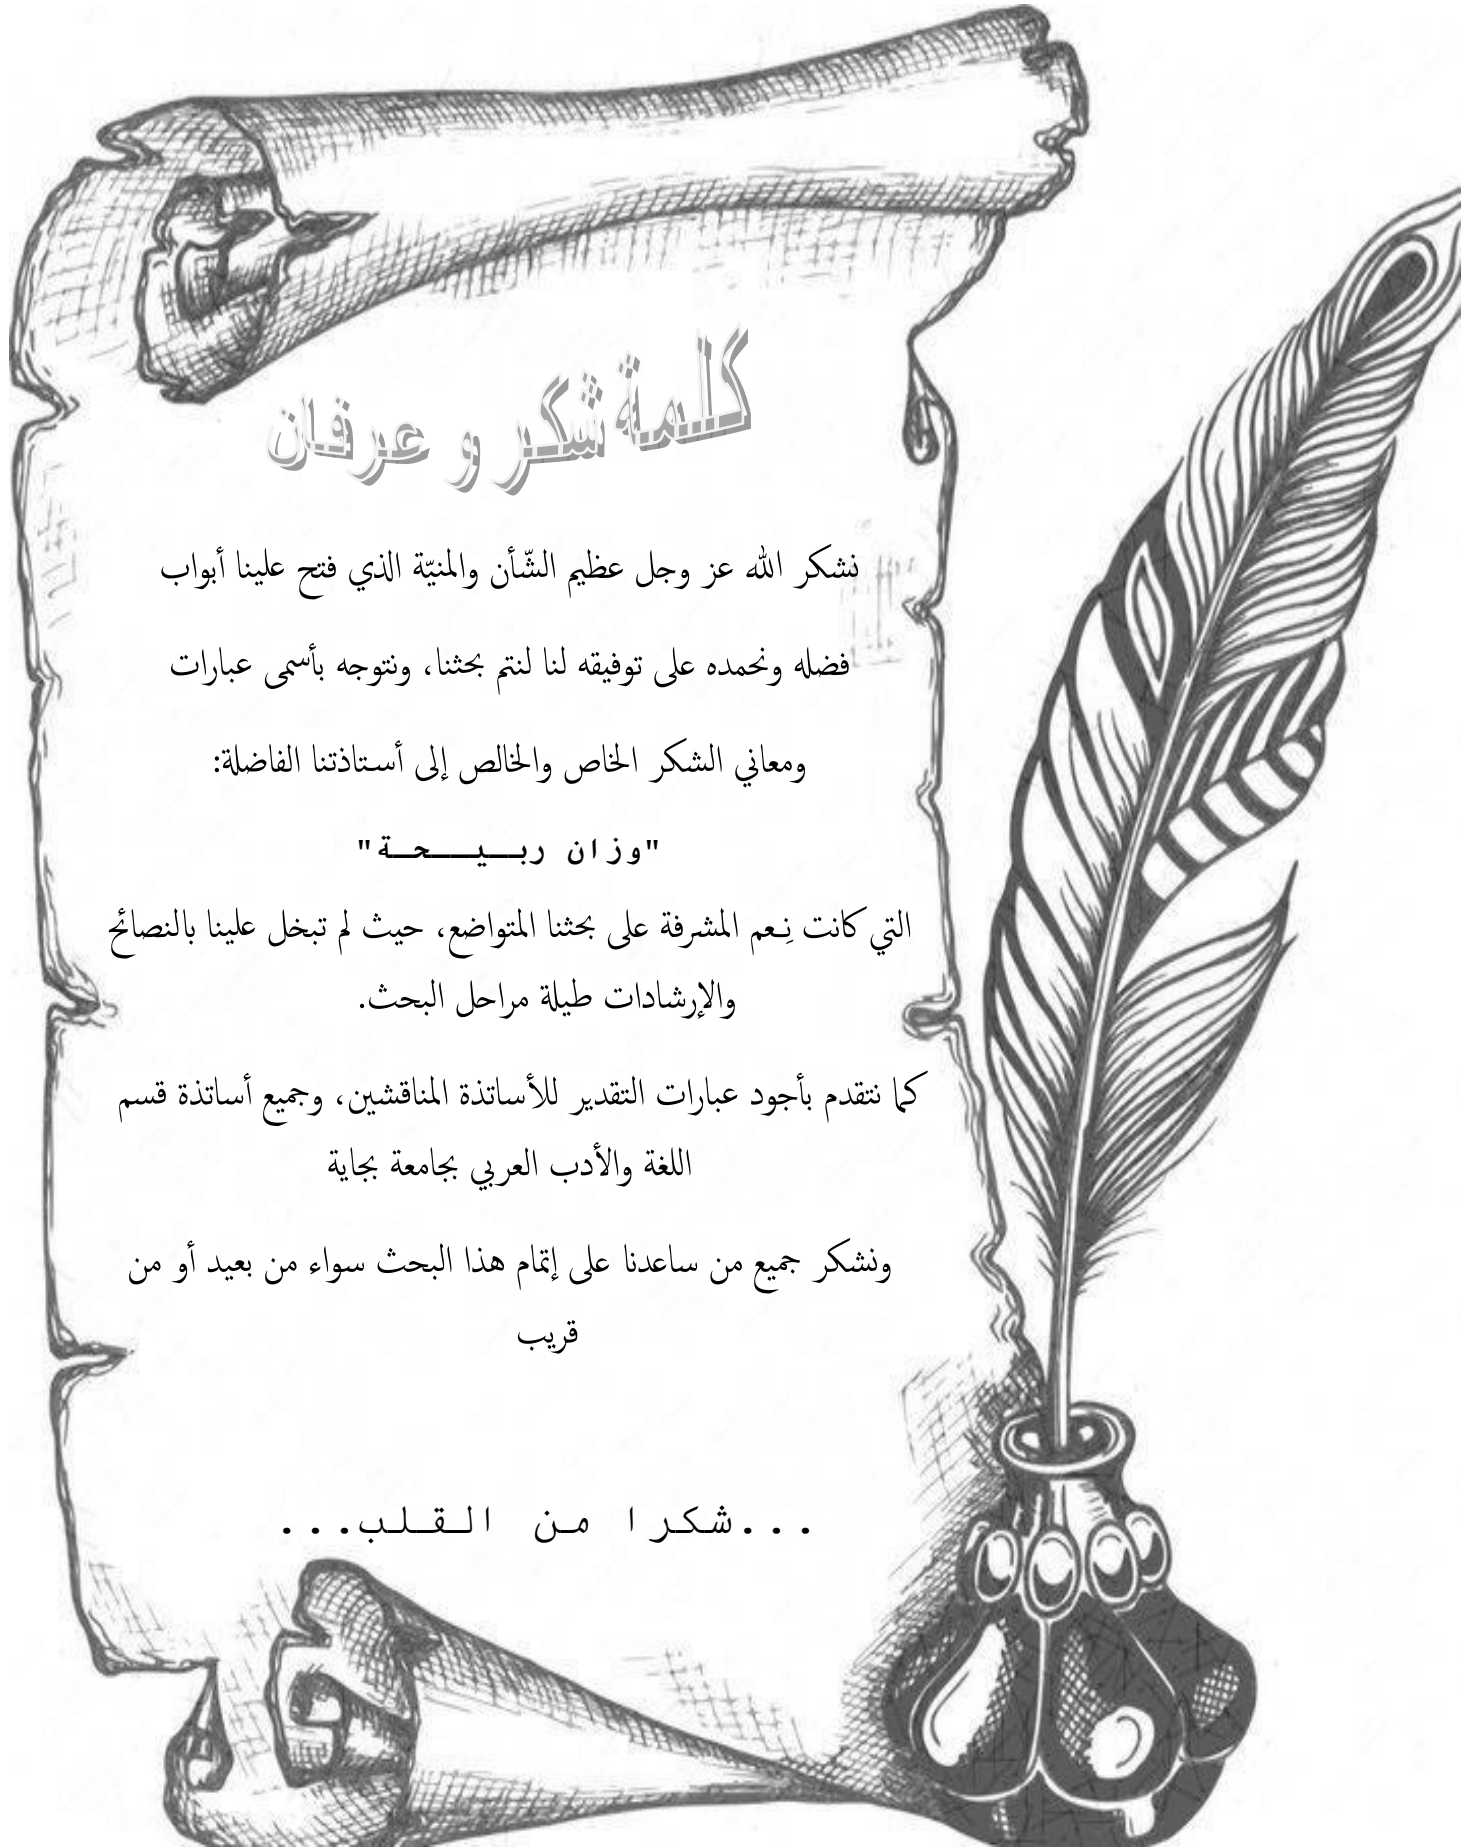 كلمة شكر و عرفان
نشكر الله عز وجل عظيم الشّأن والمنيّة الذي فتح علينا أبواب
فضله ونحمده على توفيقه لنا لنتم بحثنا، ونتوجه بأسمى عبارات
ومعاني الشكر الخاص والخالص إلى أستاذتنا الفاضلة:
"وزان ربـــيـــحــة"
التي كانت نِعم المشرفة على بحثنا المتواضع، حيث لم تبخل علينا بالنصائح
والإرشادات طيلة مراحل البحث.
كما نتقدم بأجود عبارات التقدير للأساتذة المناقشين، وجميع أساتذة قسم
اللغة والأدب العربي بجامعة بجاية
ونشكر جميع من ساعدنا على إتمام هذا البحث سواء من بعيد أو من
قريب
...شكرا من القلب...